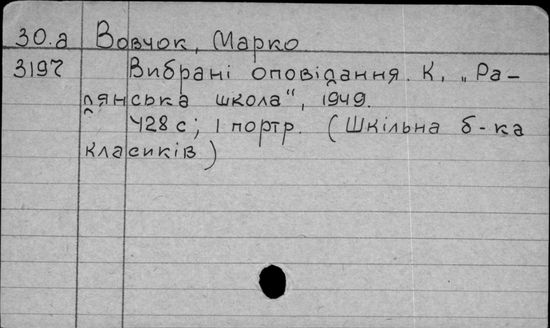 30.а Вовчок, Марко
3197 Вибрані оповідання. К., „Ра-
дянська школа“, 1949.
428 с; 1 портр. (Шкільна б-ка
класиків)